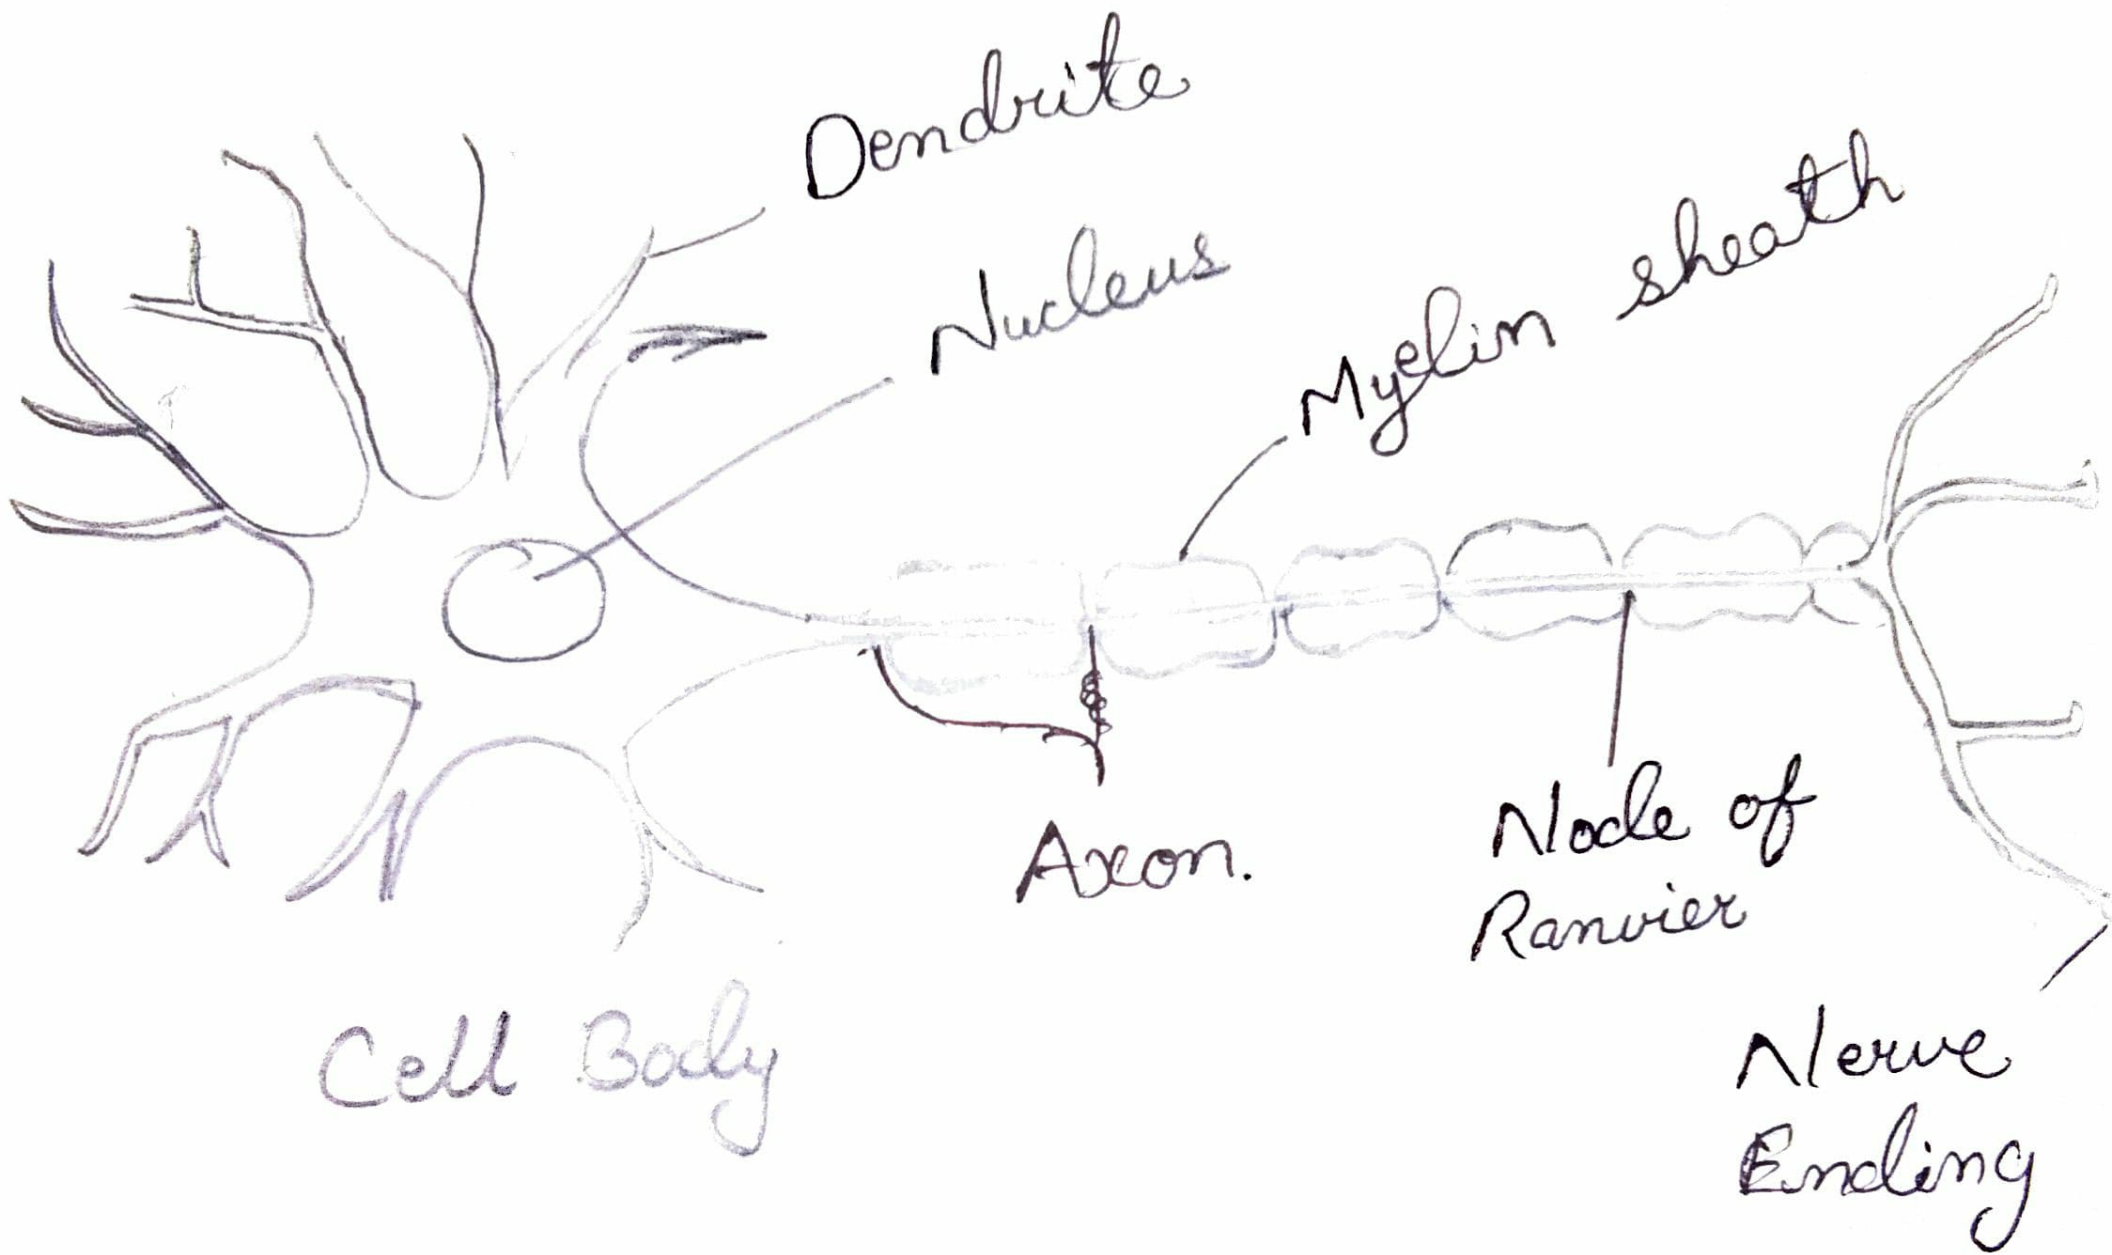 Dendrite
Nucleus
Myelin sheath
Axon.
Node of
Ranvier
Cell Body
Nerve
Ending